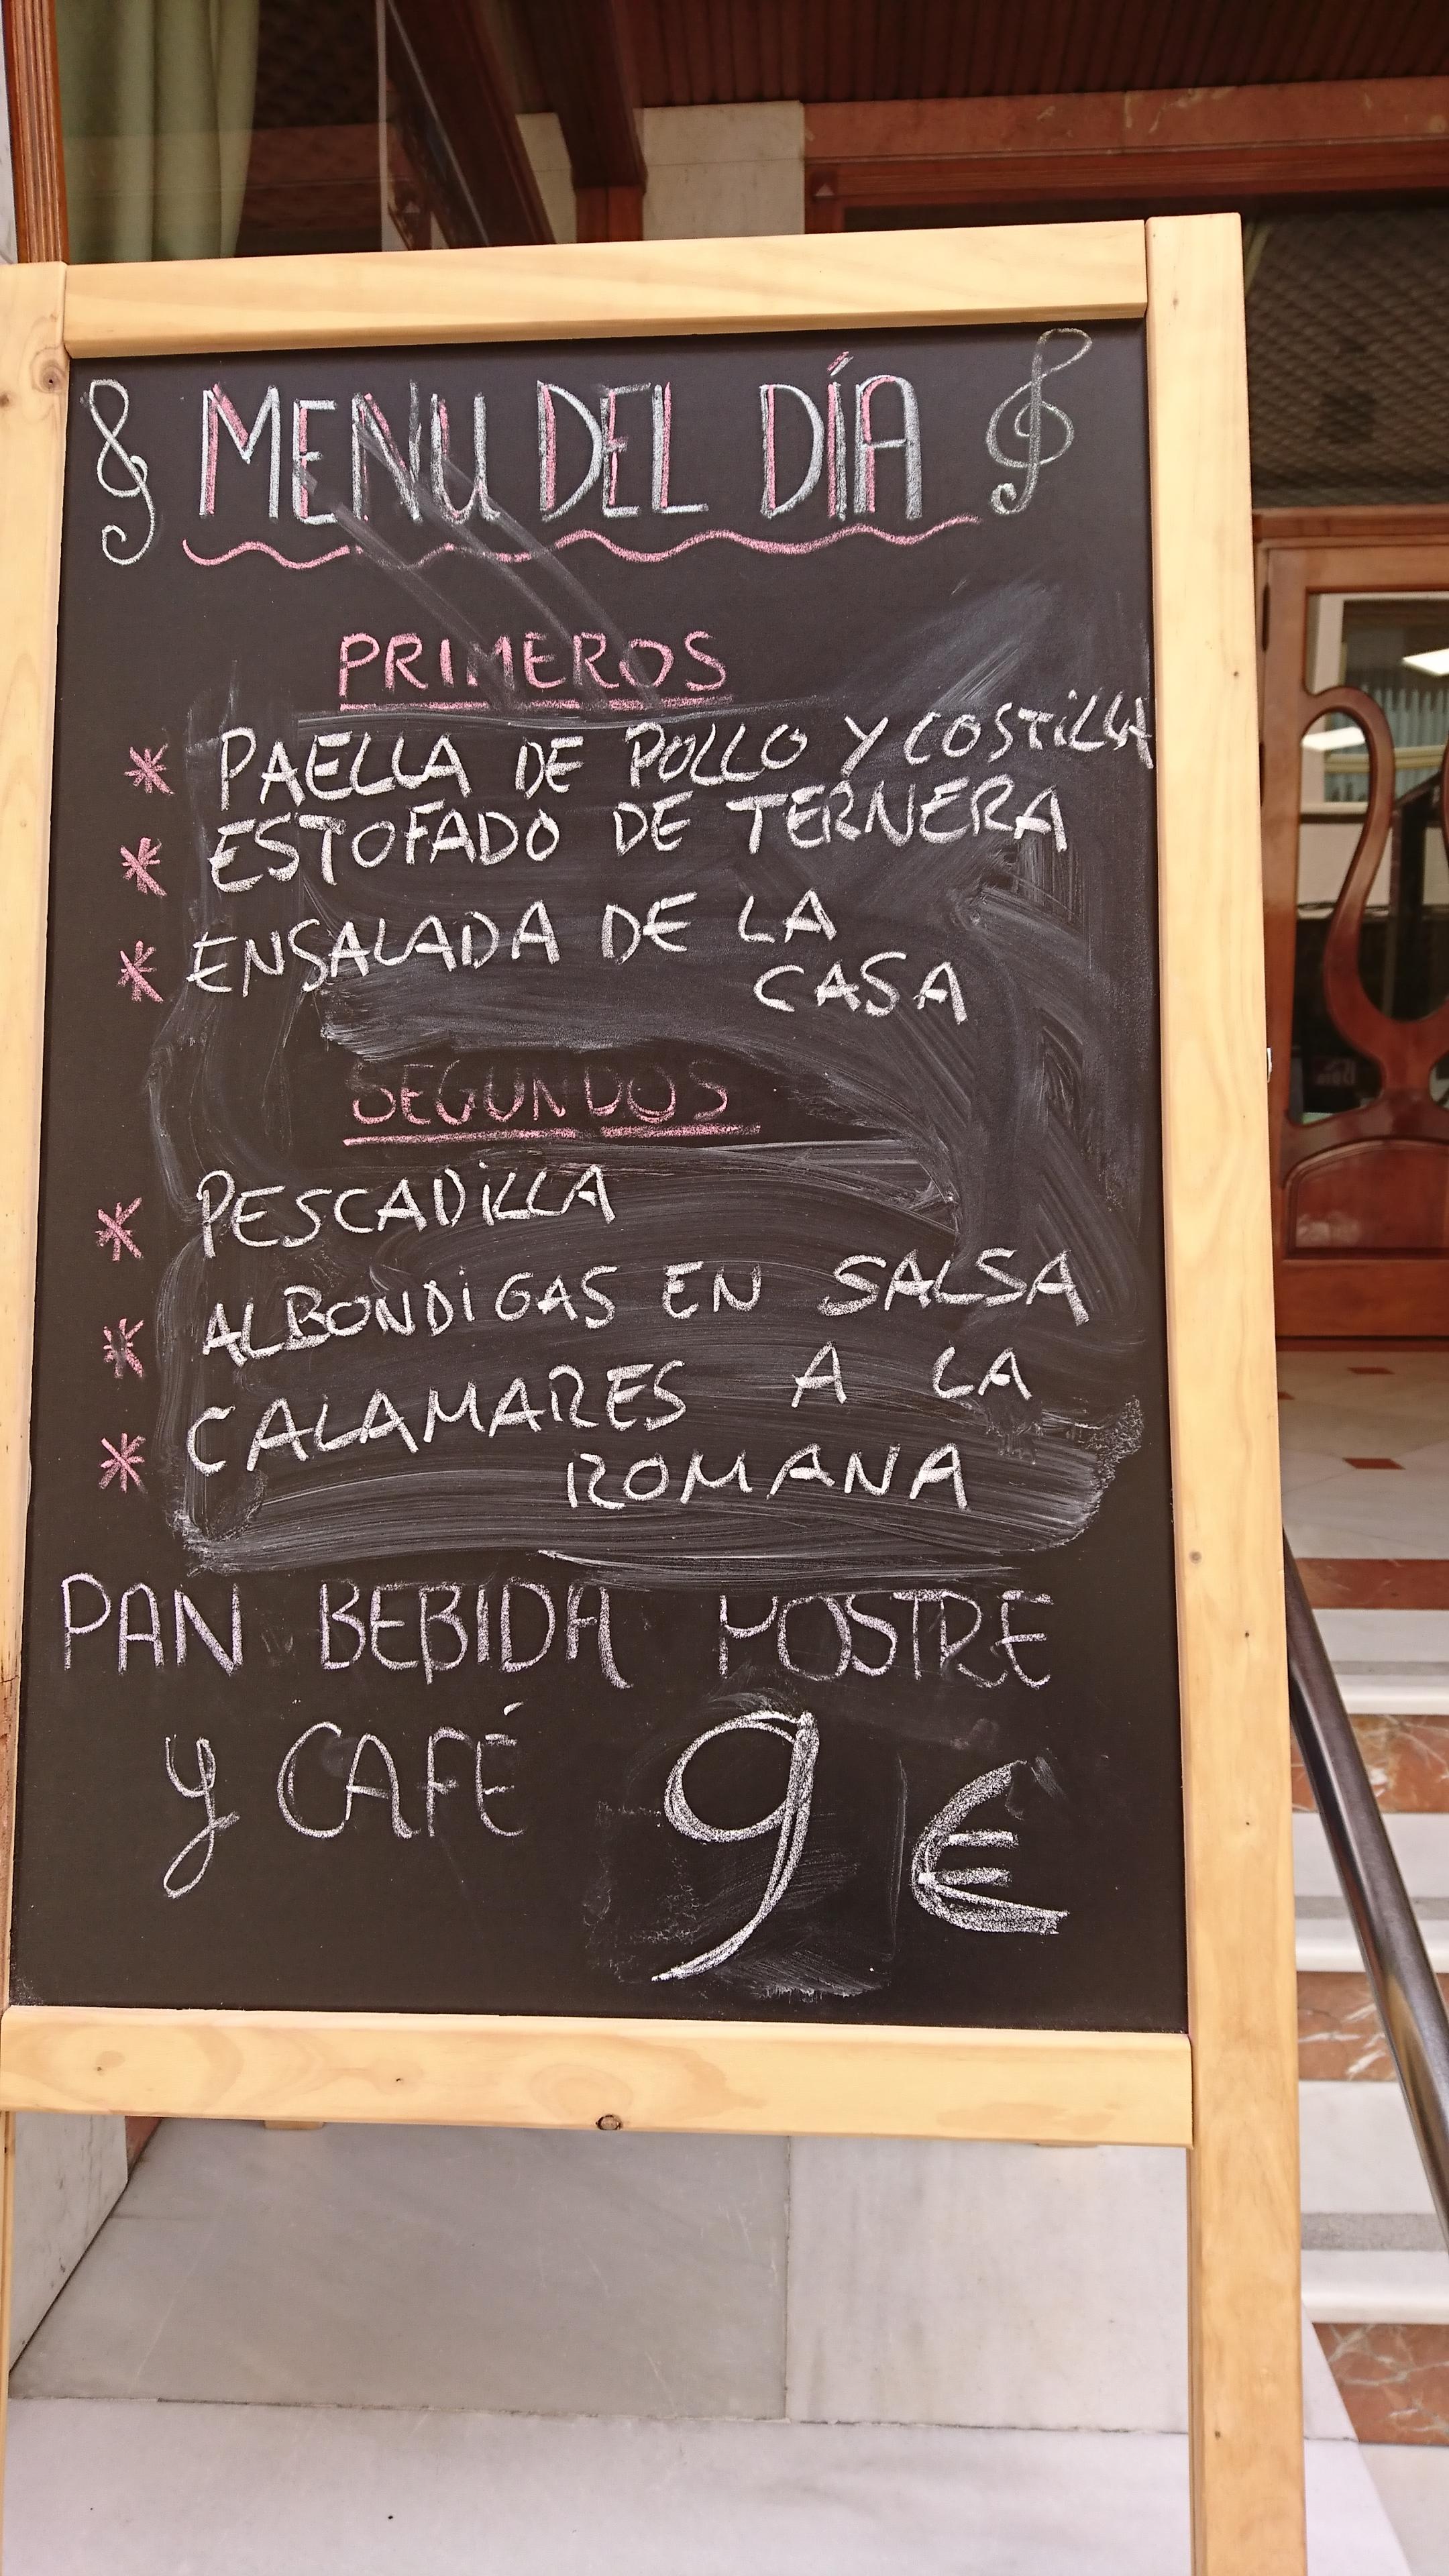 MENU DEL DÍA
PRIMEROS
* PAELLA DE POLLO Y COSTILLA
* ESTOFADO DE TERNERA
* ENSALADA DE LA
CASA
SEGUNDOS
* PESCADILLA
* ALBONDIGAS EN SALSA
* CALAMARES A LA
ROMANA
PAN BEBIDA POSTRE
y CAFÉ 9 €